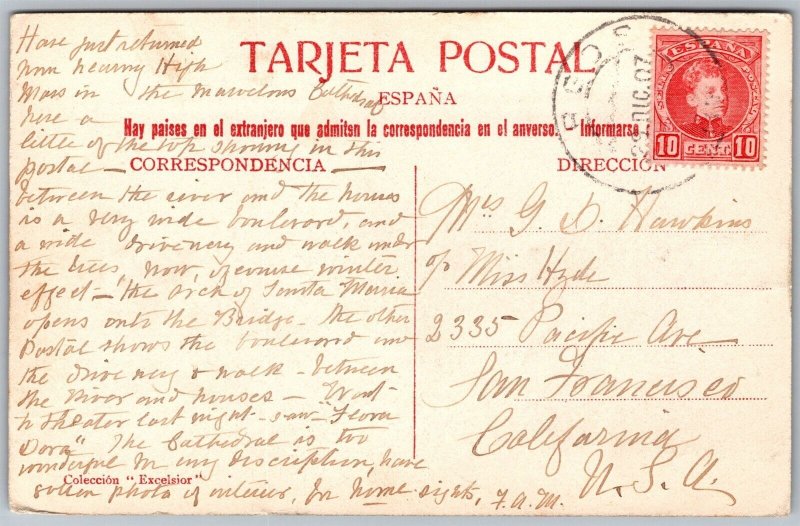 TARJETA POSTAL
ESPAÑA
Hay paises en el extranjero que admiten la correspondencia en el anverso. - Informarse
CORRESPONDENCIA
DIRECCIÓN
Have just returned
from hearing High
Mass in the marvelous Cathedral
here a
little of the top showing in this
postal —
between the river and the houses
is a very wide boulevard, and
a wide driveway and walk under
the trees, now, of course winter
effect — the Arch of Santa Maria
opens onto the Bridge. The other
Postal shows the boulevard and
the driveway & walk - between
the River and houses — Went
to theater last night - saw "Flora
Dora" The Cathedral is too
wonderful for my description, have
gotten photo of interior, In home sights, F.A.M.
Colección "Excelsior"
ESPAÑA
10 CENT. 10
DIC 07
Mrs G. D. Hawkins
c/o Miss Hyde
2335 Pacific Ave
San Francisco
California
U.S.A.